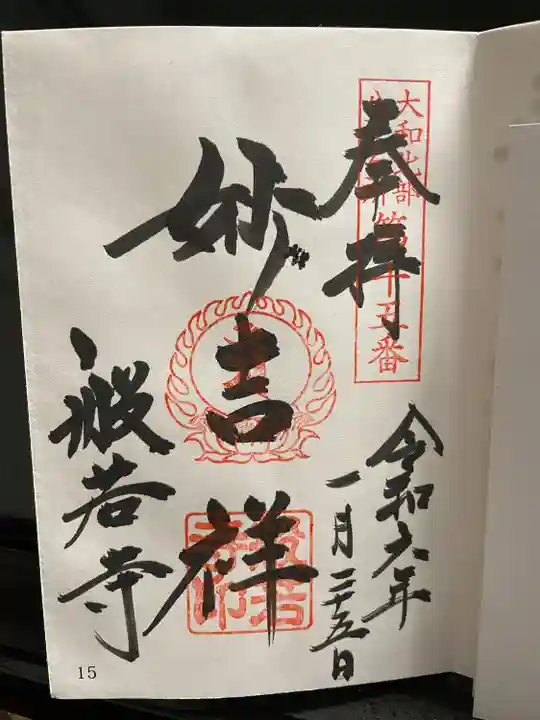 奉拝
大和北部
第十五番
令和六年
一月二十五日
妙吉祥
般若寺
15